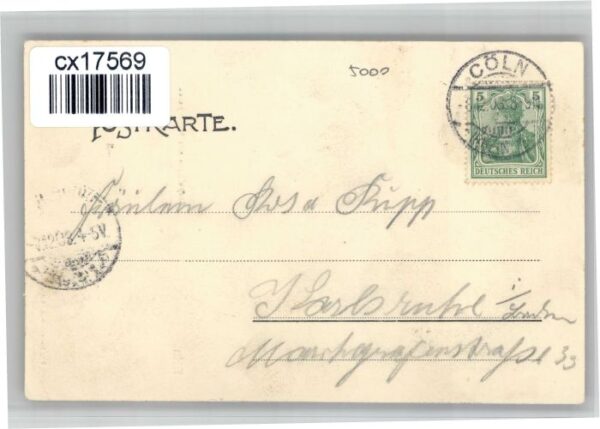 cx17569
5000
POSTKARTE.
CÖLN
5 5
DEUTSCHES REICH
Fräulein Rosa Rupp
Karlsruhe i/
Baden
Markgrafenstraße 33
4-5V.